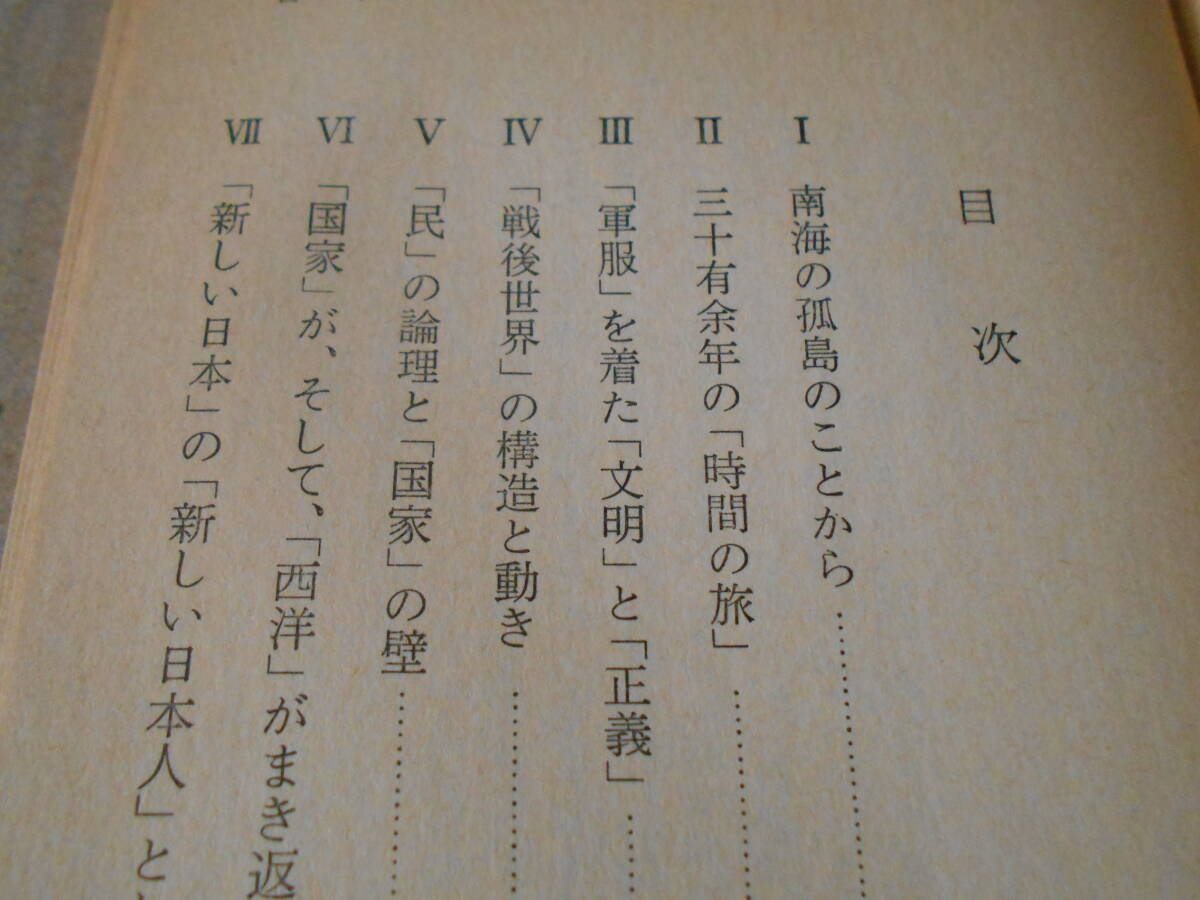 目次
I 南海の孤島のことから……………
II 三十有余年の「時間の旅」……………
III 「軍服」を着た「文明」と「正義」……
IV 「戦後世界」の構造と動き……………
V 「民」の論理と「国家」の壁……………
VI 「国家」が、そして、「西洋」がまき返
VII 「新しい日本」の「新しい日本人」と